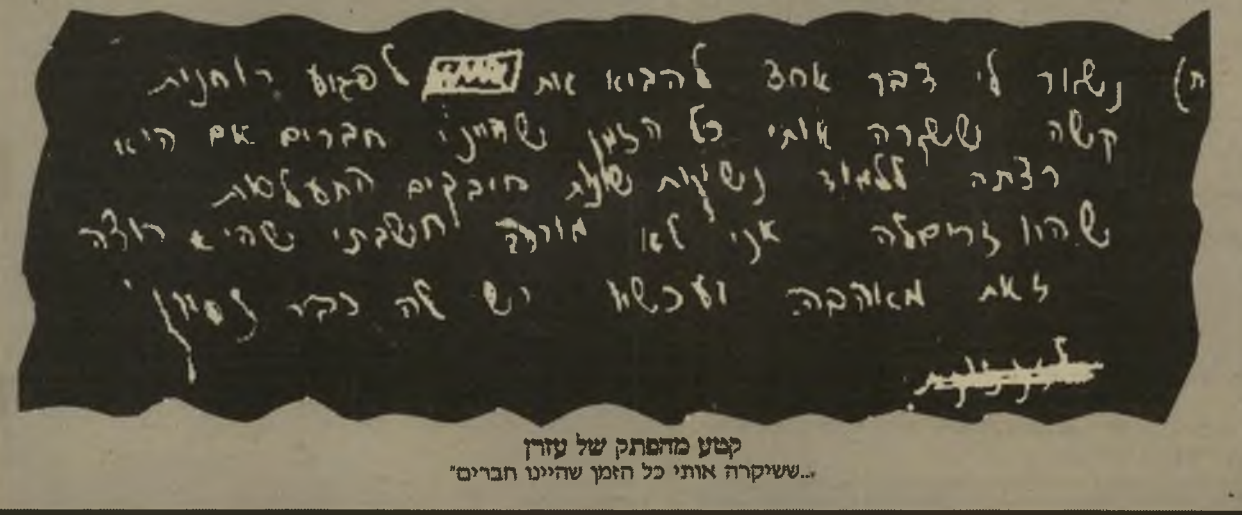 ת) נשאר לי דבר אחד להביא את לפגוע רוחנית
קשה ששקרה אותי כל הזמן שהיינו חברים אם היא
רצתה ללמוד נשיקות שונות חיבקים התעלסות
שהיו אני לא מורה חשבתי שהיא רוצה
זאת מאהבה ועכשיו יש לה כבר נסיון
קטע מהפתק של עזרן
"...ששיקרה אותי כל הזמן שהיינו חברים"